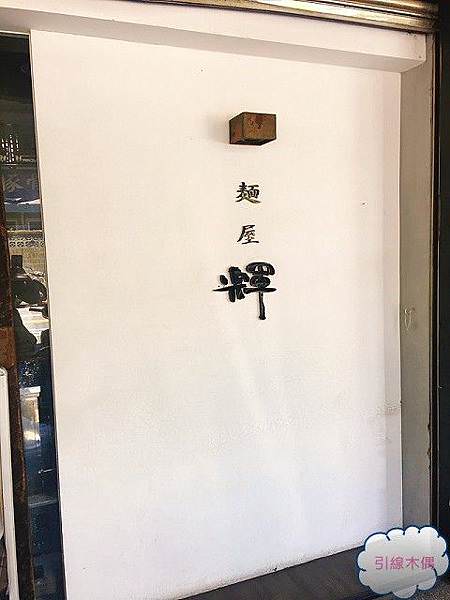 麵
屋
輝
引線木偶